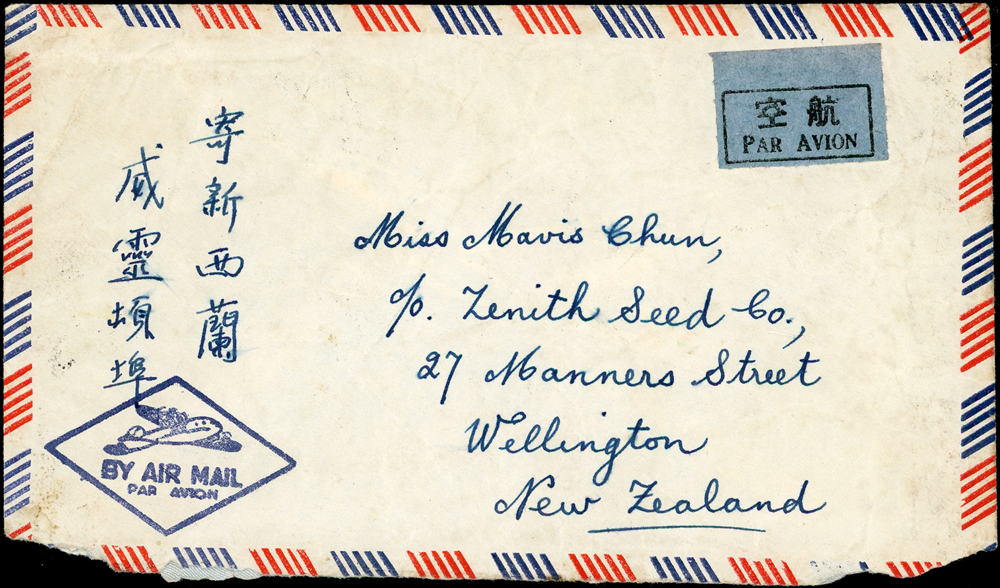 寄新西蘭
威靈頓埠
空航
PAR AVION
Miss Mavis Chun,
c/o. Zenith Seed Co.,
27 Manners Street
Wellington
New Zealand
BY AIR MAIL
PAR AVION